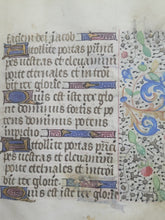 faciem dei jacob
Attollite portas princi
pes vestras et elevamini
porte eternales et introi
bit rex glorie
Quis est iste rex glorie
dominus fortis et potens
dominus potens in
prelio
Attollite portas princi
pes vestras et elevamini
porte eternales et introi
bit rex glorie
Quis est iste rex glorie